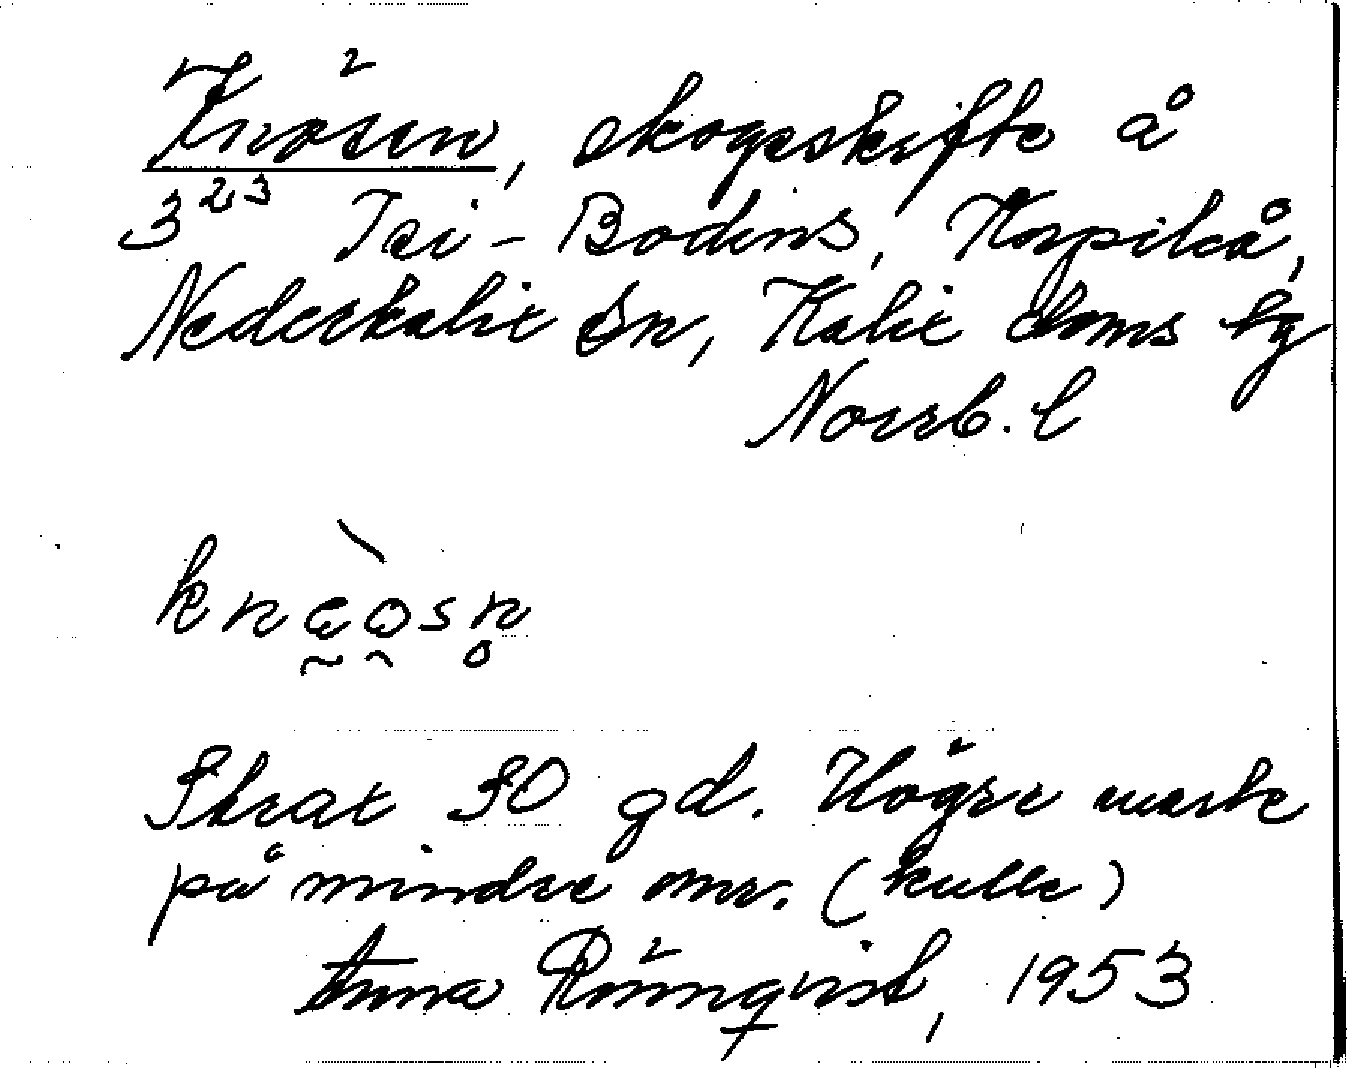 Knösen, skogsskifte å
3²³ Tei-Bodens, Korpikå,
Nederkalix sn, Kalix doms lg
Norrb. l
knɛ̀ɔsn̥
Skrat 30 gd. Högre mark
på mindre omr. (kulle)
Anna Rönnqvist, 1953